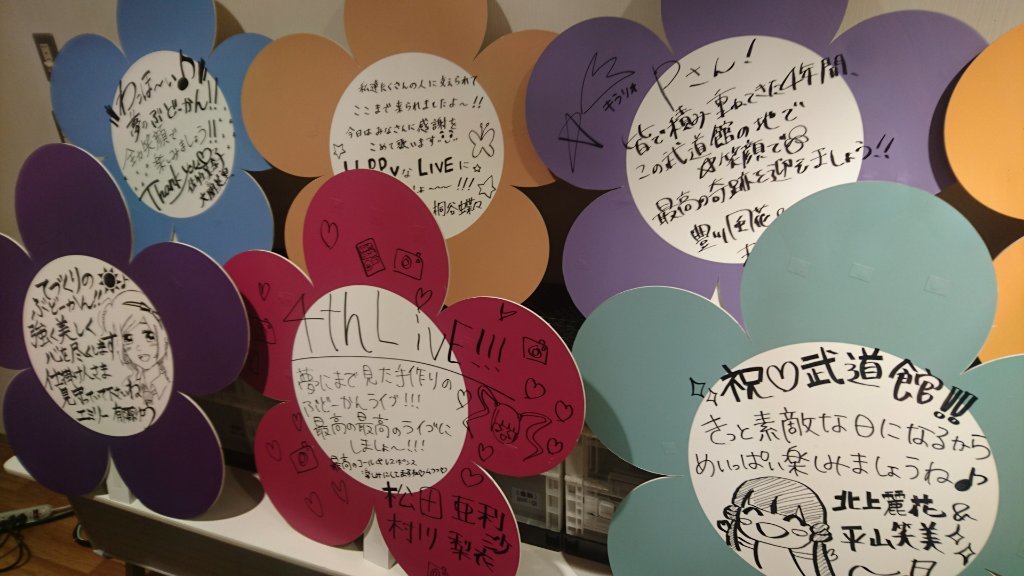 わっほ〜い♪
夢のぶどーかん!!
全力笑顔で
楽しみましょう!!
Thank you♡
私達たくさんの人に支えられて
ここまで来られましたよ〜!!
今日はみなさんに感謝を
こめて歌います
HAPPYなLIVEに☆
しょー〜!!!
桐谷蝶々
キラリオ
Pさん!
皆で積み重ねてきた4年間、
この武道館の地で
大笑顔で
最高の奇跡を迎えましょう!!
豊川風花
てづくりの
ぶどーかん!!
強く美しく
心を尽くします
仕掛け人さま
見守っていてくださいね
エミリー
4th LIVE!!!
夢にまで見た手作りの
ぶどーかんライブ!!!
最高の最高のライブに
しましょ〜!!!
松田亜利沙
村川梨衣
祝♡武道館!!!
きっと素敵な日になるから
めいっぱい楽しみましょうね♪
北上麗花&
平山笑美